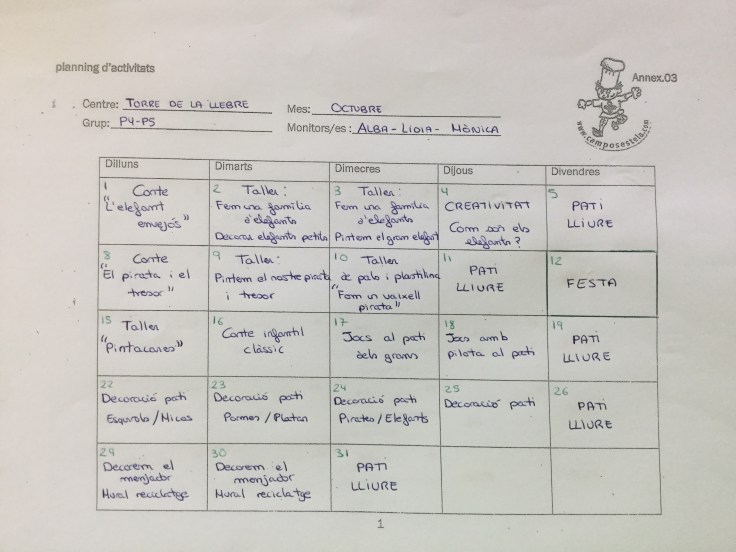 planning d'activitats
Annex.03
www.camposestela.com
Centre: TORRE DE LA LLEBRE
Mes: OCTUBRE
Grup: P4-P5
Monitors/es: ALBA - LIDIA - MÒNICA
Dilluns Dimarts Dimecres Dijous Divendres
1 Conte
"L'elefant
envejós"
2 Taller:
Fem una família
d'elefants
Decorar elefants petits
3 Taller:
Fem una família
d'elefants
Pintem el gran elefant
4
CREATIVITAT
Com són els
elefants?
5
PATI
LLIURE
8 Conte
"El pirata i el
tresor"
9 Taller:
Pintem el nostre pirata
i tresor
10 Taller
de pals i plastilina
"Fem un vaixell
pirata"
11
PATI
LLIURE
12
FESTA
15 Taller
"Pintacares"
16
Conte infantil
clàssic
17
Jocs al pati
dels grans
18
Jocs amb
pilota al pati
19
PATI
LLIURE
22
Decoració pati
Esquirols/Micos
23
Decoració pati
Pomes/Platan
24
Decoració pati
Pirates/Elefants
25
Decoració pati
26
PATI
LLIURE
29
Decorem el
menjador
Mural reciclatge
30
Decorem el
menjador
Mural reciclatge
31
PATI
LLIURE
1